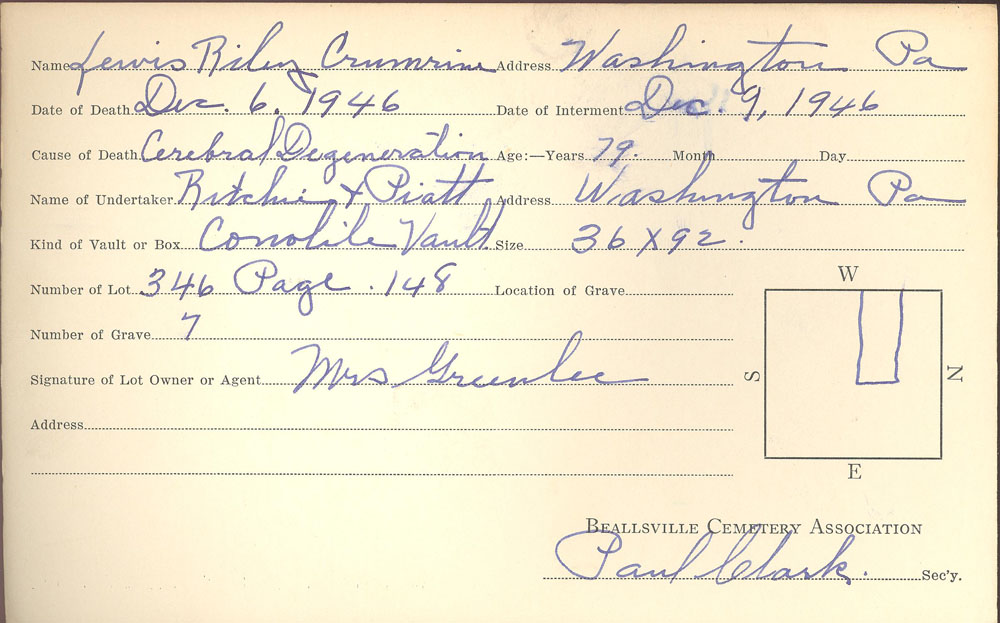 Name Lewis Riley Crumrine Address Washington Pa
Date of Death Dec. 6, 1946 Date of Interment Dec. 9, 1946
Cause of Death Cerebral Degeneration Age:—Years 79. Month Day
Name of Undertaker Ritchie & Piatt Address Washington Pa
Kind of Vault or Box Vault Size 36 X 92.
Number of Lot 346 Page. 148 Location of Grave
Number of Grave 7
Signature of Lot Owner or Agent Mrs Greenlee
Address
W
S
N
E
BEALLSVILLE CEMETERY ASSOCIATION
Paul Clark. Sec'y.